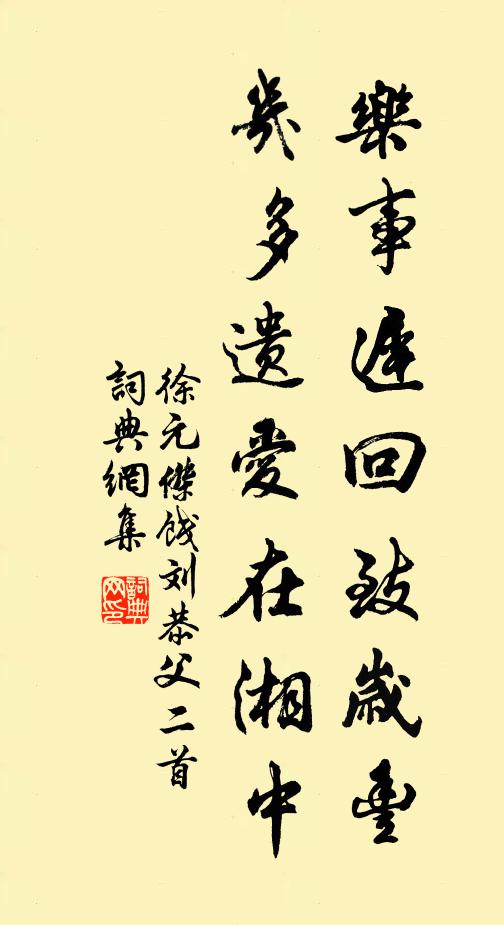 樂事遲回致歲豐
幾多遺愛在湘中
徐元傑餞刘恭父二首
詞典網集
詞典網印